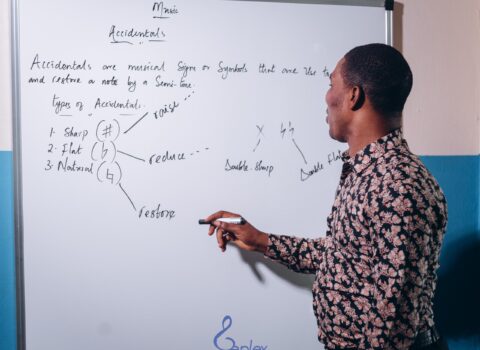 Music
Accidentals
Accidentals are musical Sign or Symbols that are use to
and restore a note by a Semi-tone.
types of Accidentals.
1. Sharp (#) raise ...
2. Flat (♭) reduce ...
3. Natural (♮) restore
x ♭♭
Double-Sharp Double Flat